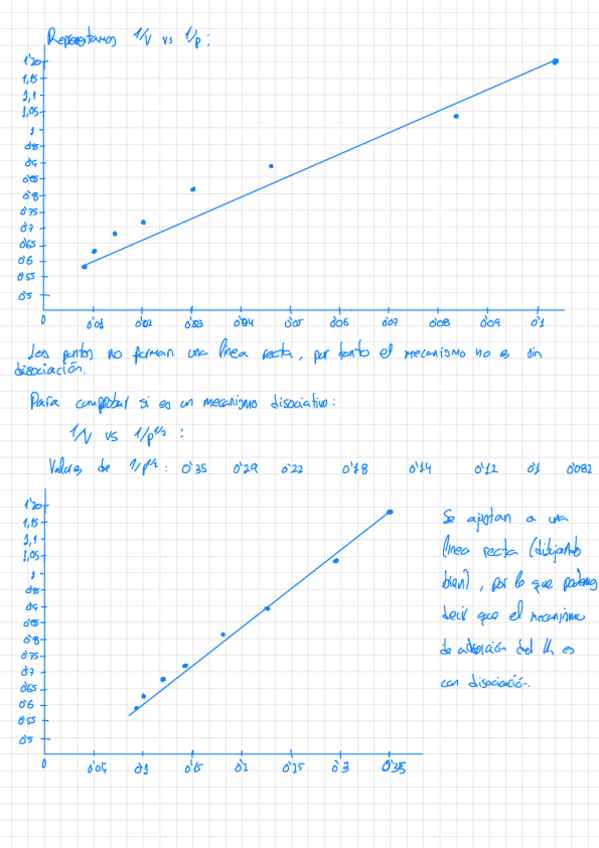 Representamos 1/V vs 1/p :
1'20
1,15
1,1
1,05
1
0'9
0'85
0'8
0'75
0'7
0'65
0'6
0'55
0'5
0 0'01 0'02 0'03 0'04 0'05 0'06 0'07 0'08 0'09 0'1
Los puntos no forman una línea recta, por tanto el mecanismo no es sin
disociación.
Para comprobar si es un mecanismo disociativo:
1/V vs 1/p^1/2 :
Valores de 1/p^1/2 : 0'35 0'29 0'22 0'18 0'14 0'12 0'1 0'082
1'20
1,15
1,1
1,05
1
0'9
0'85
0'8
0'75
0'7
0'65
0'6
0'55
0'5
0'05 0'1 0'15 0'2 0'25 0'3 0'35
Se ajustan a una
línea recta (dibujando
bien), por lo que podemos
decir que el mecanismo
de adsorción del es
con disociación.